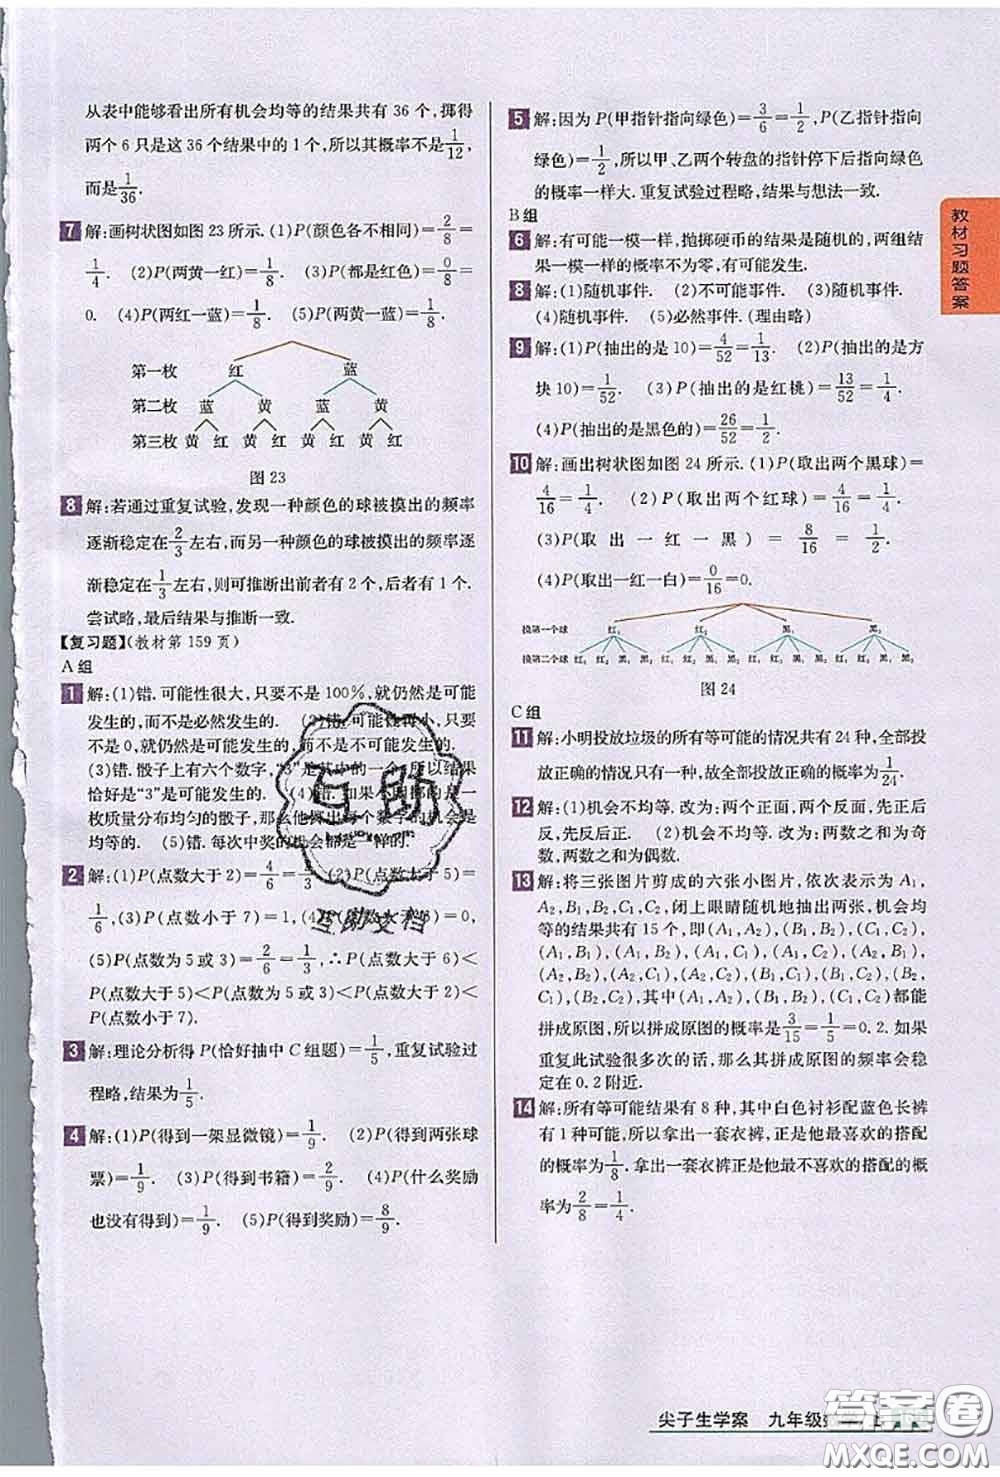 从表中能够看出所有机会均等的结果共有 36 个,掷得
两个 6 只是这 36 个结果中的 1 个,所以其概率不是1/12,
而是1/36.
7 解:画树状图如图 23 所示. (1)P(颜色各不相同)=2/8=
1/4. (2)P(两黄一红)=1/8. (3)P(都是红色)=0/8=
0. (4)P(两红一蓝)=1/8. (5)P(两黄一蓝)=1/8.
第一枚 红 蓝
第二枚 蓝 黄 蓝 黄
第三枚 黄 红 黄 红 黄 红 黄 红
图 23
8 解:若通过重复试验,发现一种颜色的球被摸出的频率
逐渐稳定在2/3左右,而另一种颜色的球被摸出的频率逐
渐稳定在1/3左右,则可推断出前者有 2 个,后者有 1 个.
尝试略,最后结果与推断一致.
【复习题】(教材第 159 页)
A 组
1 解:(1)错. 可能性很大,只要不是 100%,就仍然是可能
发生的,而不是必然发生的. (2)错. 可能性再小,只要
不是 0,就仍然是可能发生的,而不是不可能发生的.
(3)错. 骰子上有六个数字,“3”是其中的一个,所以结果
恰好是“3”是可能发生的. (4)错. 如果小周掷的是一
枚质量分布均匀的骰子,那么他掷出每个数字的机会都是
均等的. (5)错. 每次中奖的机会都是一样的.
2 解:(1)P(点数大于 2)=4/6=2/3,(2)P(点数大于 5)=
1/6,(3)P(点数小于 7)=1,(4)P(点数大于 6)=0,
(5)P(点数为 5 或 3)=2/6=1/3,∴P(点数大于 6)<
P(点数大于 5)<P(点数为 5 或 3)<P(点数大于 2)<
P(点数小于 7).
3 解:理论分析得 P(恰好抽中 C 组题)=1/5,重复试验过
程略,结果为1/5.
4 解:(1)P(得到一架显微镜)=1/9. (2)P(得到两张球
票)=1/9. (3)P(得到书籍)=2/9. (4)P(什么奖励
也没有得到)=1/9. (5)P(得到奖励)=8/9.
5 解:因为 P(甲指针指向绿色)=3/6=1/2,P(乙指针指向
绿色)=1/2,所以甲、乙两个转盘的指针停下后指向绿色
的概率一样大. 重复试验过程略,结果与想法一致.
B 组
6 解:有可能一模一样,抛掷硬币的结果是随机的,两组结
果一模一样的概率不为零,有可能发生.
8 解:(1)随机事件. (2)不可能事件. (3)随机事件.
(4)随机事件. (5)必然事件. (理由略)
9 解:(1)P(抽出的是 10)=4/52=1/13. (2)P(抽出的是方
块 10)=1/52. (3)P(抽出的是红桃)=13/52=1/4.
(4)P(抽出的是黑色的)=26/52=1/2.
10 解:画出树状图如图 24 所示. (1)P(取出两个黑球)=
4/16=1/4. (2)P(取出两个红球)=4/16=1/4.
(3)P(取出一红一黑)=8/16=1/2.
(4)P(取出一红一白)=0/16=0.
摸第一个球 红1 红2 黑1 黑2
摸第二个球 红1 红2 黑1 黑2 红1 红2 黑1 黑2 红1 红2 黑1 黑2 红1 红2 黑1 黑2
图 24
C 组
11 解:小明投放垃圾的所有等可能的情况共有 24 种,全部投
放正确的情况只有一种,故全部投放正确的概率为1/24.
12 解:(1)机会不均等. 改为:两个正面,两个反面,先正后
反,先反后正. (2)机会不均等. 改为:两数之和为奇
数,两数之和为偶数.
13 解:将三张图片剪成的六张小图片,依次表示为 A1,
A2,B1,B2,C1,C2,闭上眼睛随机地抽出两张,机会均
等的结果共有 15 个,即(A1,A2),(B1,B2),(C1,C2),
(A1,B1),(A1,B2),(A1,C1),(A1,C2),(A2,B1),
(A2,B2),(A2,C1),(A2,C2),(B1,C1),(B1,C2),
(B2,C1),(B2,C2),其中(A1,A2),(B1,B2),(C1,C2)都能
拼成原图,所以拼成原图的概率为3/15=1/5=0.2. 如果
重复此试验很多次的话,那么其拼成原图的频率会稳
定在 0.2 附近.
14 解:所有等可能结果有 8 种,其中白色衬衫配蓝色长裤
有 1 种可能,所以拿出一套衣裤,正是他最喜欢的搭配
的概率为1/8. 拿出一套衣裤正是他最不喜欢的搭配的概
率为2/8=1/4.
教材习题答案
互助
互助文档
尖子生学案 九年级
答案卷
MXQE.COM